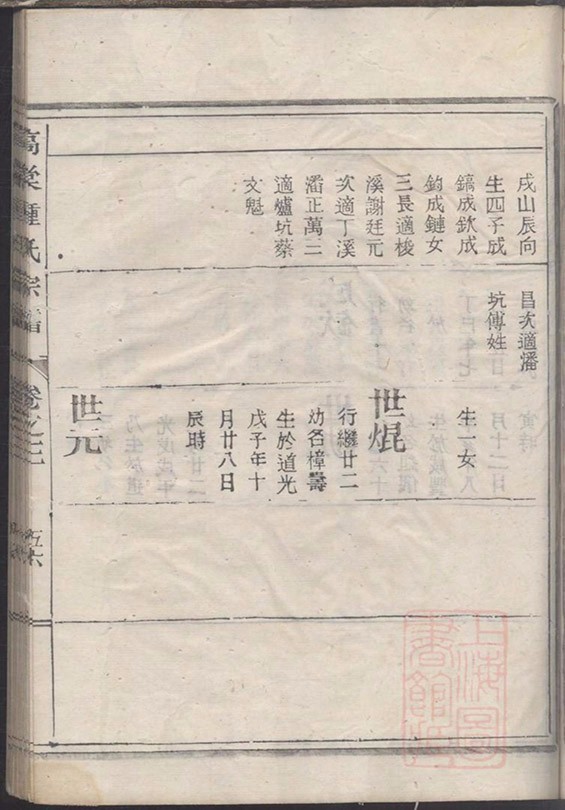 戌山辰向
生四子成
鎬成欽成
鈞成鏈女
三長適梭
溪謝廷元
次適丁溪
潘正萬三
適爐坑蔡
文魁
昌次適潘
坑傅姓
生一女
世焜
行纘廿二
幼名樟壽
生於道光
戊子年十
月廿八日
辰時
世元
鍾氏宗譜
卷之二
五六
上海圖
書館藏